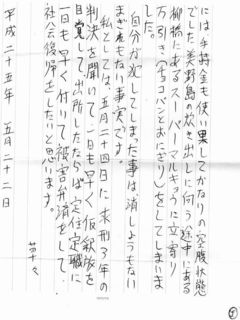 には手持金も使い果してかなりの空腹状態
でした。美野島の炊き出しに向う途中にある
柳橋にあるスーパーマルキョウに立寄り
万引き(食コパンとおにぎり)をしてしまいま
した。
自分が犯してしまた事は、消しようもない
まぎれもない事実です。
私としては、五月二十四日に未刑3年の
判決を聞いて、一日も早く、仮釈放を
目指して、出所したならば定住、定職に
一日も早く付いて被害弁済をして、
社会復帰をしたいと思います。
平成二十五年 五月二十二日
草々